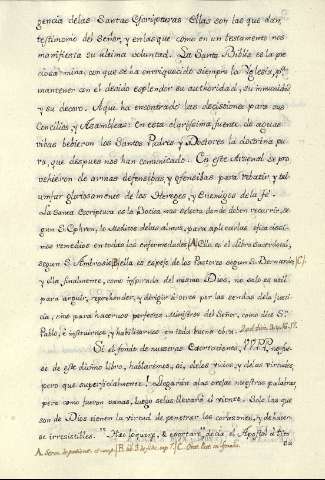 gencia de las Santas Escripturas. Ellas son las que dan
testimonio del Señor, y en las que como en un testamento nos
manifiesta su ultima voluntad. La Santa Biblia es la pre
ciosa mina, con que se ha enriquecido siempre la Yglesia, pª
mantener con el devido esplendor su authoridad, su inmunidad
y su decoro. Aqui ha encontrado las decissiones para sus
Concilios, y Asambleas: En esta clarissima fuente de aguas
vibas bebieron los Santos Padres y Doctores la doctrina pu
ra, que despues nos han comunicado. En este Arsenal se pro
vehieron de armas defensibas, y ofensibas para rebatir y tri
umfar gloriosamente de los Hereges, y Enemigos de la fé.
La Santa Escriptura es la Botica mas selecta donde deben recurrir, se
gun S. Ephren, los Medicos de las almas, para aplicarles eficacissi
mos remedios en todas las enfermedades (A) Ella es el libro Sacerdotal,
segun S. Ambrosio, B ella es espejo de los Pastores segun S. Bernardo (C)
y ella finalmente, como inspirada del mismo Dios, no solo es util
para arguir, reprehender, y dirigir à otros por las sendas de la Jus
cia, sino para hacernos perfectos Ministros del Señor, como dice Sn.
Pablo, é instruirnos, y habilitarnos en toda buena obra.
Si el fondo de nuestras Exortaciones, PP. no fue
se de este divino libro, hablaremos, si, de los vicios y de las virtudes,
pero que superficialmente! allegarán à las orejas nuestras palabras,
pero como fueron vanas, luego se las llevará el viento. Solo las que
son de Dios tienen la virtud de penetrar los corazones, y de hacer
se irresistibles. "Haec loquere, & exortare" decia el Apostol à Tito